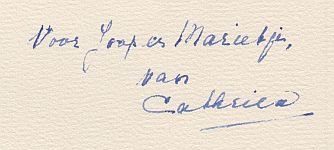 Voor Joop en Marietje,
van
Cathrien